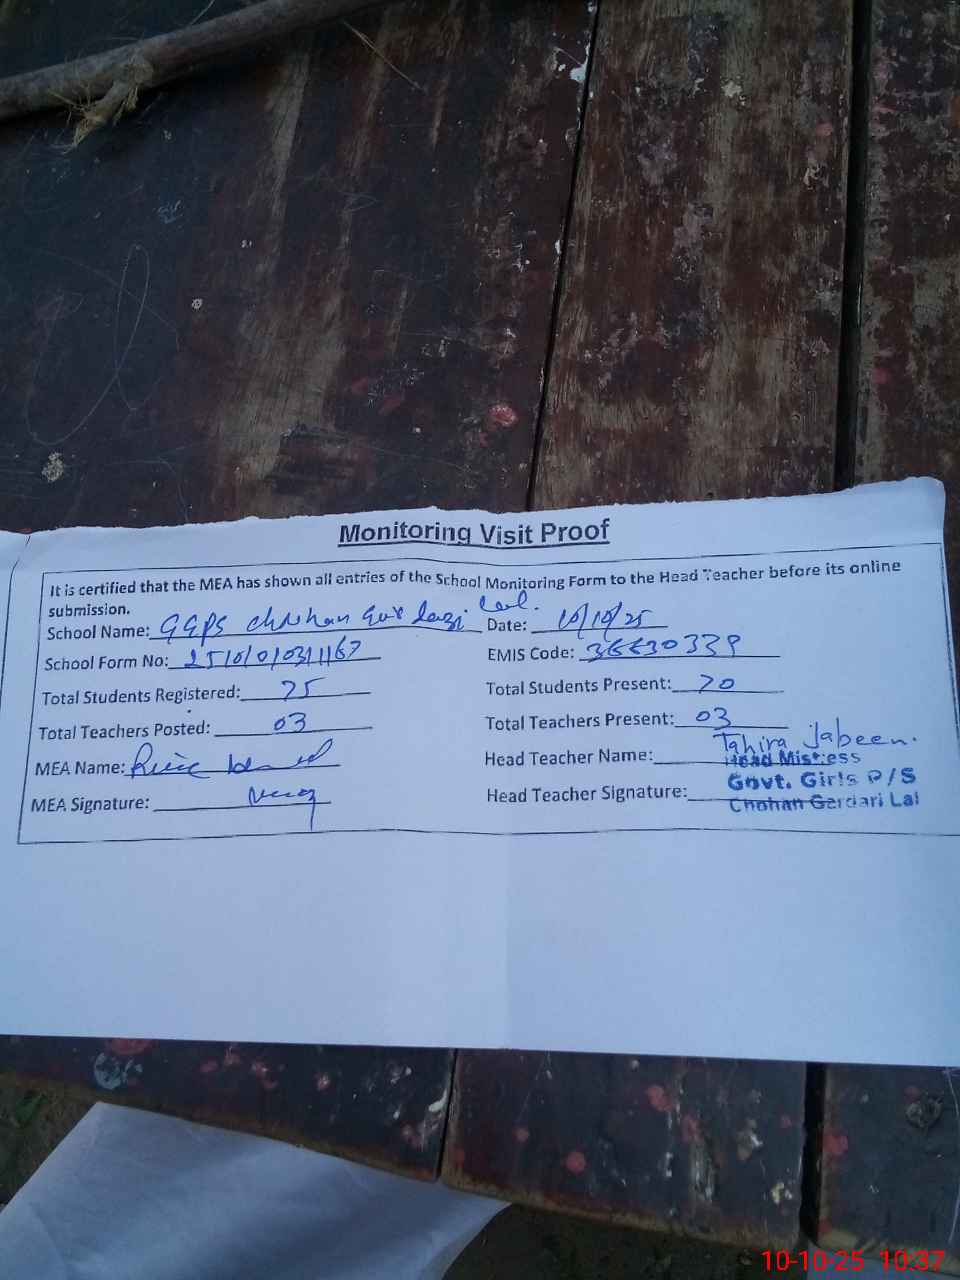 Monitoring Visit Proof
It is certified that the MEA has shown all entries of the School Monitoring Form to the Head Teacher before its online
submission.
School Name: GGPS Chohan Lal. Date: 10/10/25
School Form No: EMIS Code:
Total Students Registered: 75 Total Students Present: 70
Total Teachers Posted: 03 Total Teachers Present: 03
MEA Name: Head Teacher Name: Tahira Jabeen.
Head Mistress
MEA Signature: Head Teacher Signature: Govt. Girls P/S
Chohan Gardari Lal
10-10-25 10:37